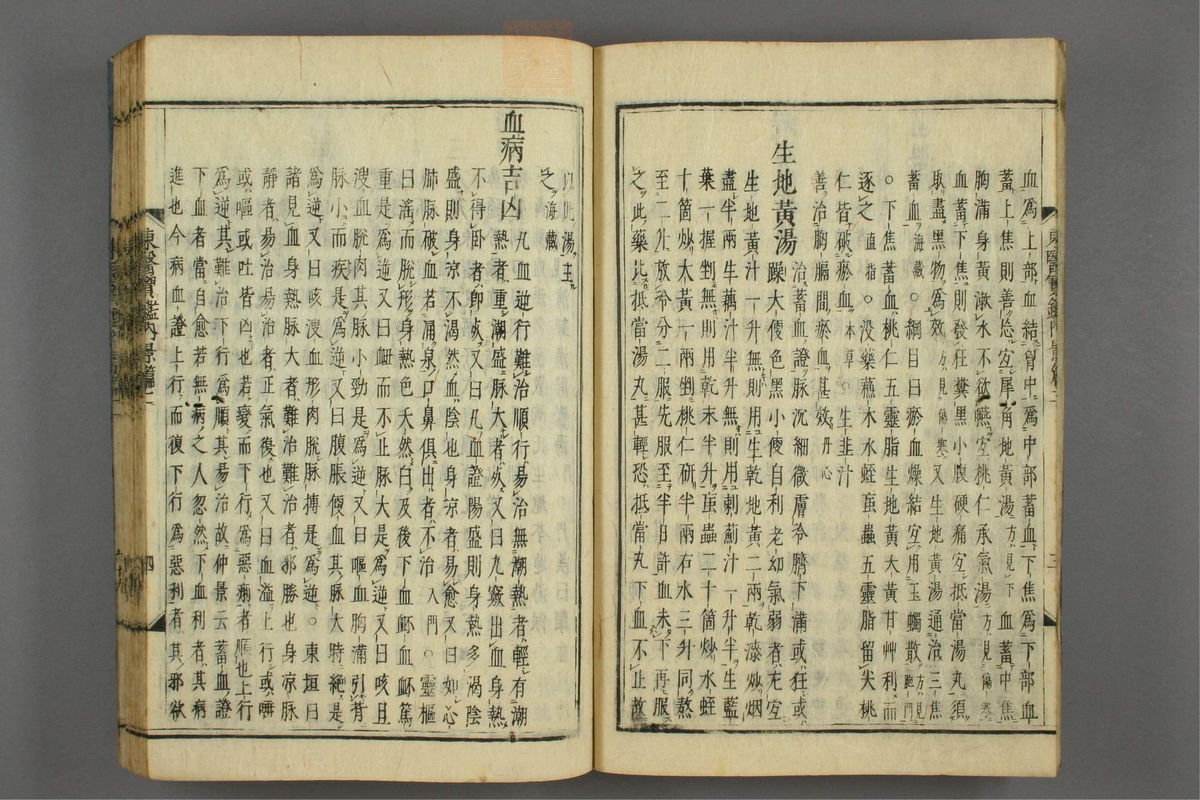 血爲上部血結胷中爲中部蓄血下焦爲下部血
蓄上焦則善忘宜犀角地黃湯方見下血蓄中焦
胸滿身黃漱水不欲嚥宜桃仁承氣湯方見傷寒
血蓄下焦則發狂糞黑小腹硬痛宜抵當湯丸須
取盡黑物爲效方見傷寒又生地黃湯通治三焦
蓄血海藏○綱目曰瘀血燥結宜用玉燭散方見胞門
○下焦蓄血桃仁五靈脂生地黃大黃甘艸利而
逐之直指○没藥蘇木水蛭䖟蟲五靈脂留尖桃
仁皆破瘀血本草○生韭汁
善治胸膈間瘀血甚效丹心
生地黃湯
治蓄血證脉沉細微膚冷臍下滿或狂或
躁大便色黑小便自利老幼氣弱者尤宜
生地黃汁一升無則用生乾地黃二兩乾漆炒烟
盡半兩生藕汁半升無則用刺薊汁一升半生藍
葉一握剉無則用乾末半升䖟蟲二十箇炒水蛭
十箇炒大黃一兩剉桃仁研半兩右水三升同熬
至二升放冷分二服先服至半日許血未下再服
之此藥比抵當湯丸甚輕恐抵當丸下血不止故
以此湯主
之海藏
血病吉凶
凡血逆行難治順行易治無潮熱者輕有潮
熱者重潮盛脉大者死又曰九竅出血身熱
不得臥者卽死又曰凡血證陽盛則身熱多渴陰
盛則身涼不渴然血陰也身涼者易愈又曰如心
肺脉破血若涌泉口鼻俱出者不治入門○靈樞
曰滛而脫形身熱色夭然白及後下血衃血衃篤
重是爲逆又曰衄而不止脉大是爲逆又曰咳且
溲血脫肉其脉小勁是爲逆又曰嘔血胸滿引背
脉小而疾是爲逆又曰腹脹便血其脉大時絕是
爲逆又曰咳溲血形肉脫脉搏是爲逆○東垣曰
諸見血身熱脉大者難治難治者邪勝也身涼脉
靜者易治易治者正氣復也又曰血溢上行或唾
或嘔或吐皆凶也若變而下行爲惡痢者順也上行
爲逆其難治下行爲順其易治故仲景云蓄血證
下血者當自愈若無病之人忽然下血利者其病
進也今病血證上行而復下行爲惡利者其邪欲
東醫寶鑑內景篇二
三
四